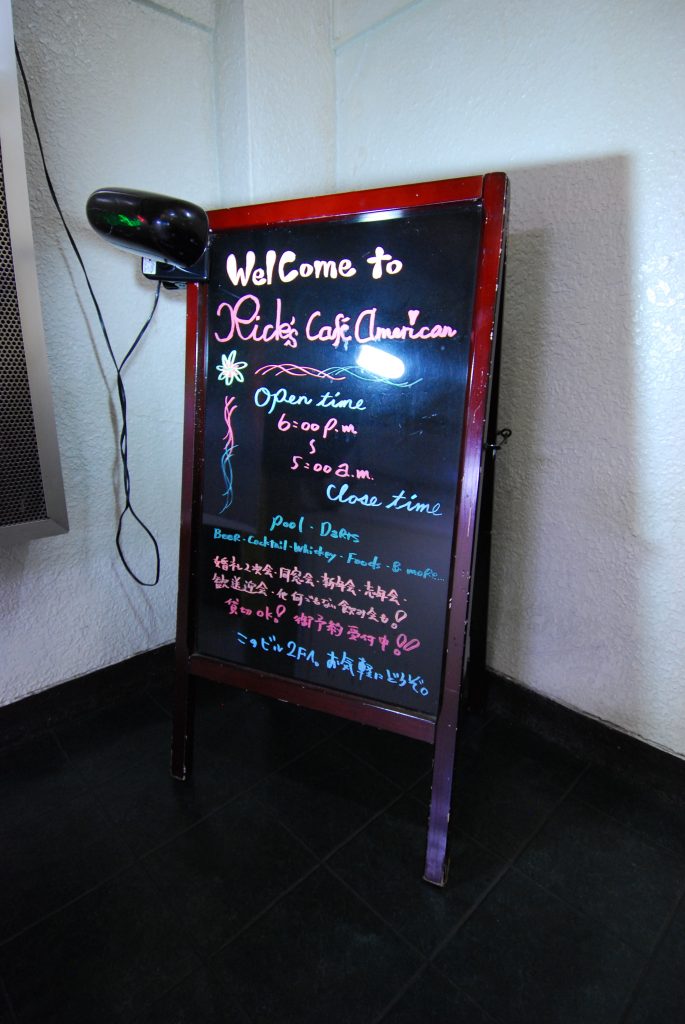 Welcome to
Rick's Café American
Open time
6:00 p.m
5:00 a.m.
Close time
Pool・Darts
Beer・Cocktail・Whiskey・Foods・& more...
婚礼2次会・同窓会・新年会・忘年会・
歓送迎会・化何でもない飲み会も!
貸切ok! 御予約受付中!!
このビル2Fへ。お気軽にどうぞ。